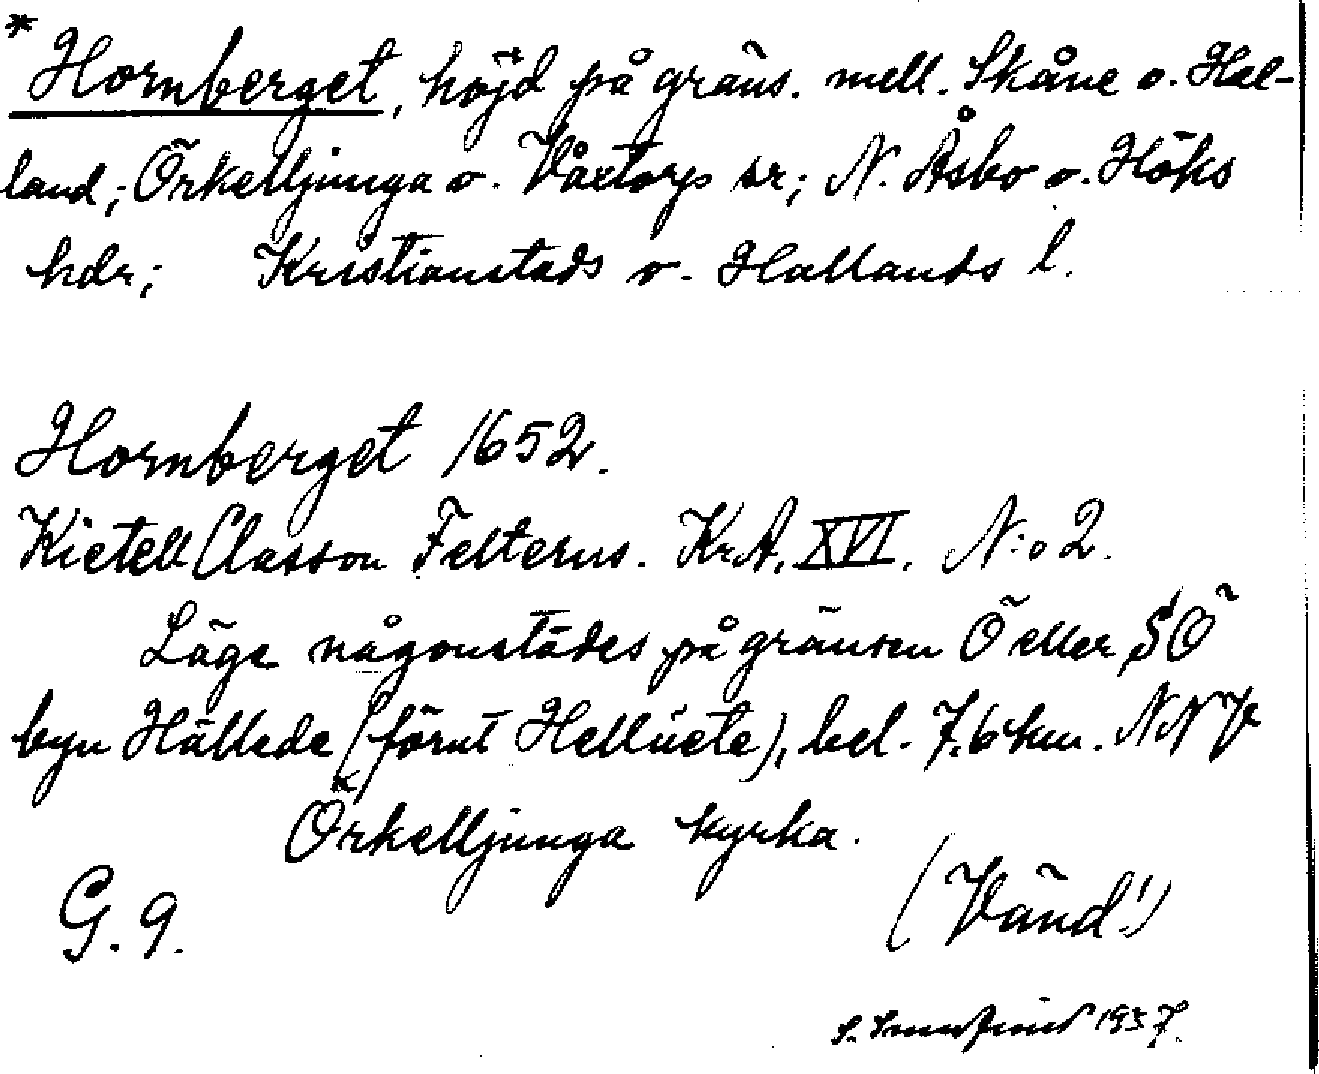 * Hornberget, höjd på gräns. mell. Skåne o. Hal-
land; Örkelljunga o. Våxtorp sr; N. Åsbo o. Höks
hdr; Kristianstads o. Hallands l.
Hornberget 1652.
Kietell Classon Felterus. KrA. XVI. N:o 2.
Läge någonstädes på gränsen Ö eller SÖ
byn Hällede (förut Hellüete), bel. 7.6 km. NNV
Örkelljunga kyrka.
G. 9.
(Vänd!)
S. 1937.